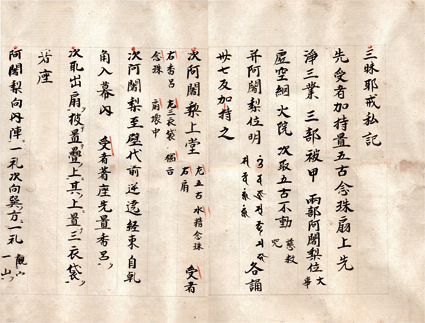 三昧耶戒私記
先受者加持置五古念珠扇上先
淨三業 三部被甲 兩部阿闍梨位大事
虚空網 大院 次取五古不動慈救呪
并阿闍梨位明 各誦
卅七反加持之
次阿闍梨上堂 左五古 水精念珠 右扇 受者
右香呂 左三衣袋 獨古
念珠 扇懐中
次阿闍梨至壁代前逆遶経東自乾
角入幕内 受者著座先置香呂
次取出扇披置疊上其上置三衣袋
著座
阿闍梨向内陣一礼次向巽方一礼